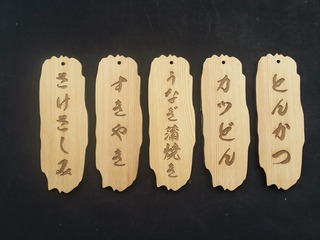 とんかつ
カツどん
うなぎ蒲焼き
すきやき
さけさしみ